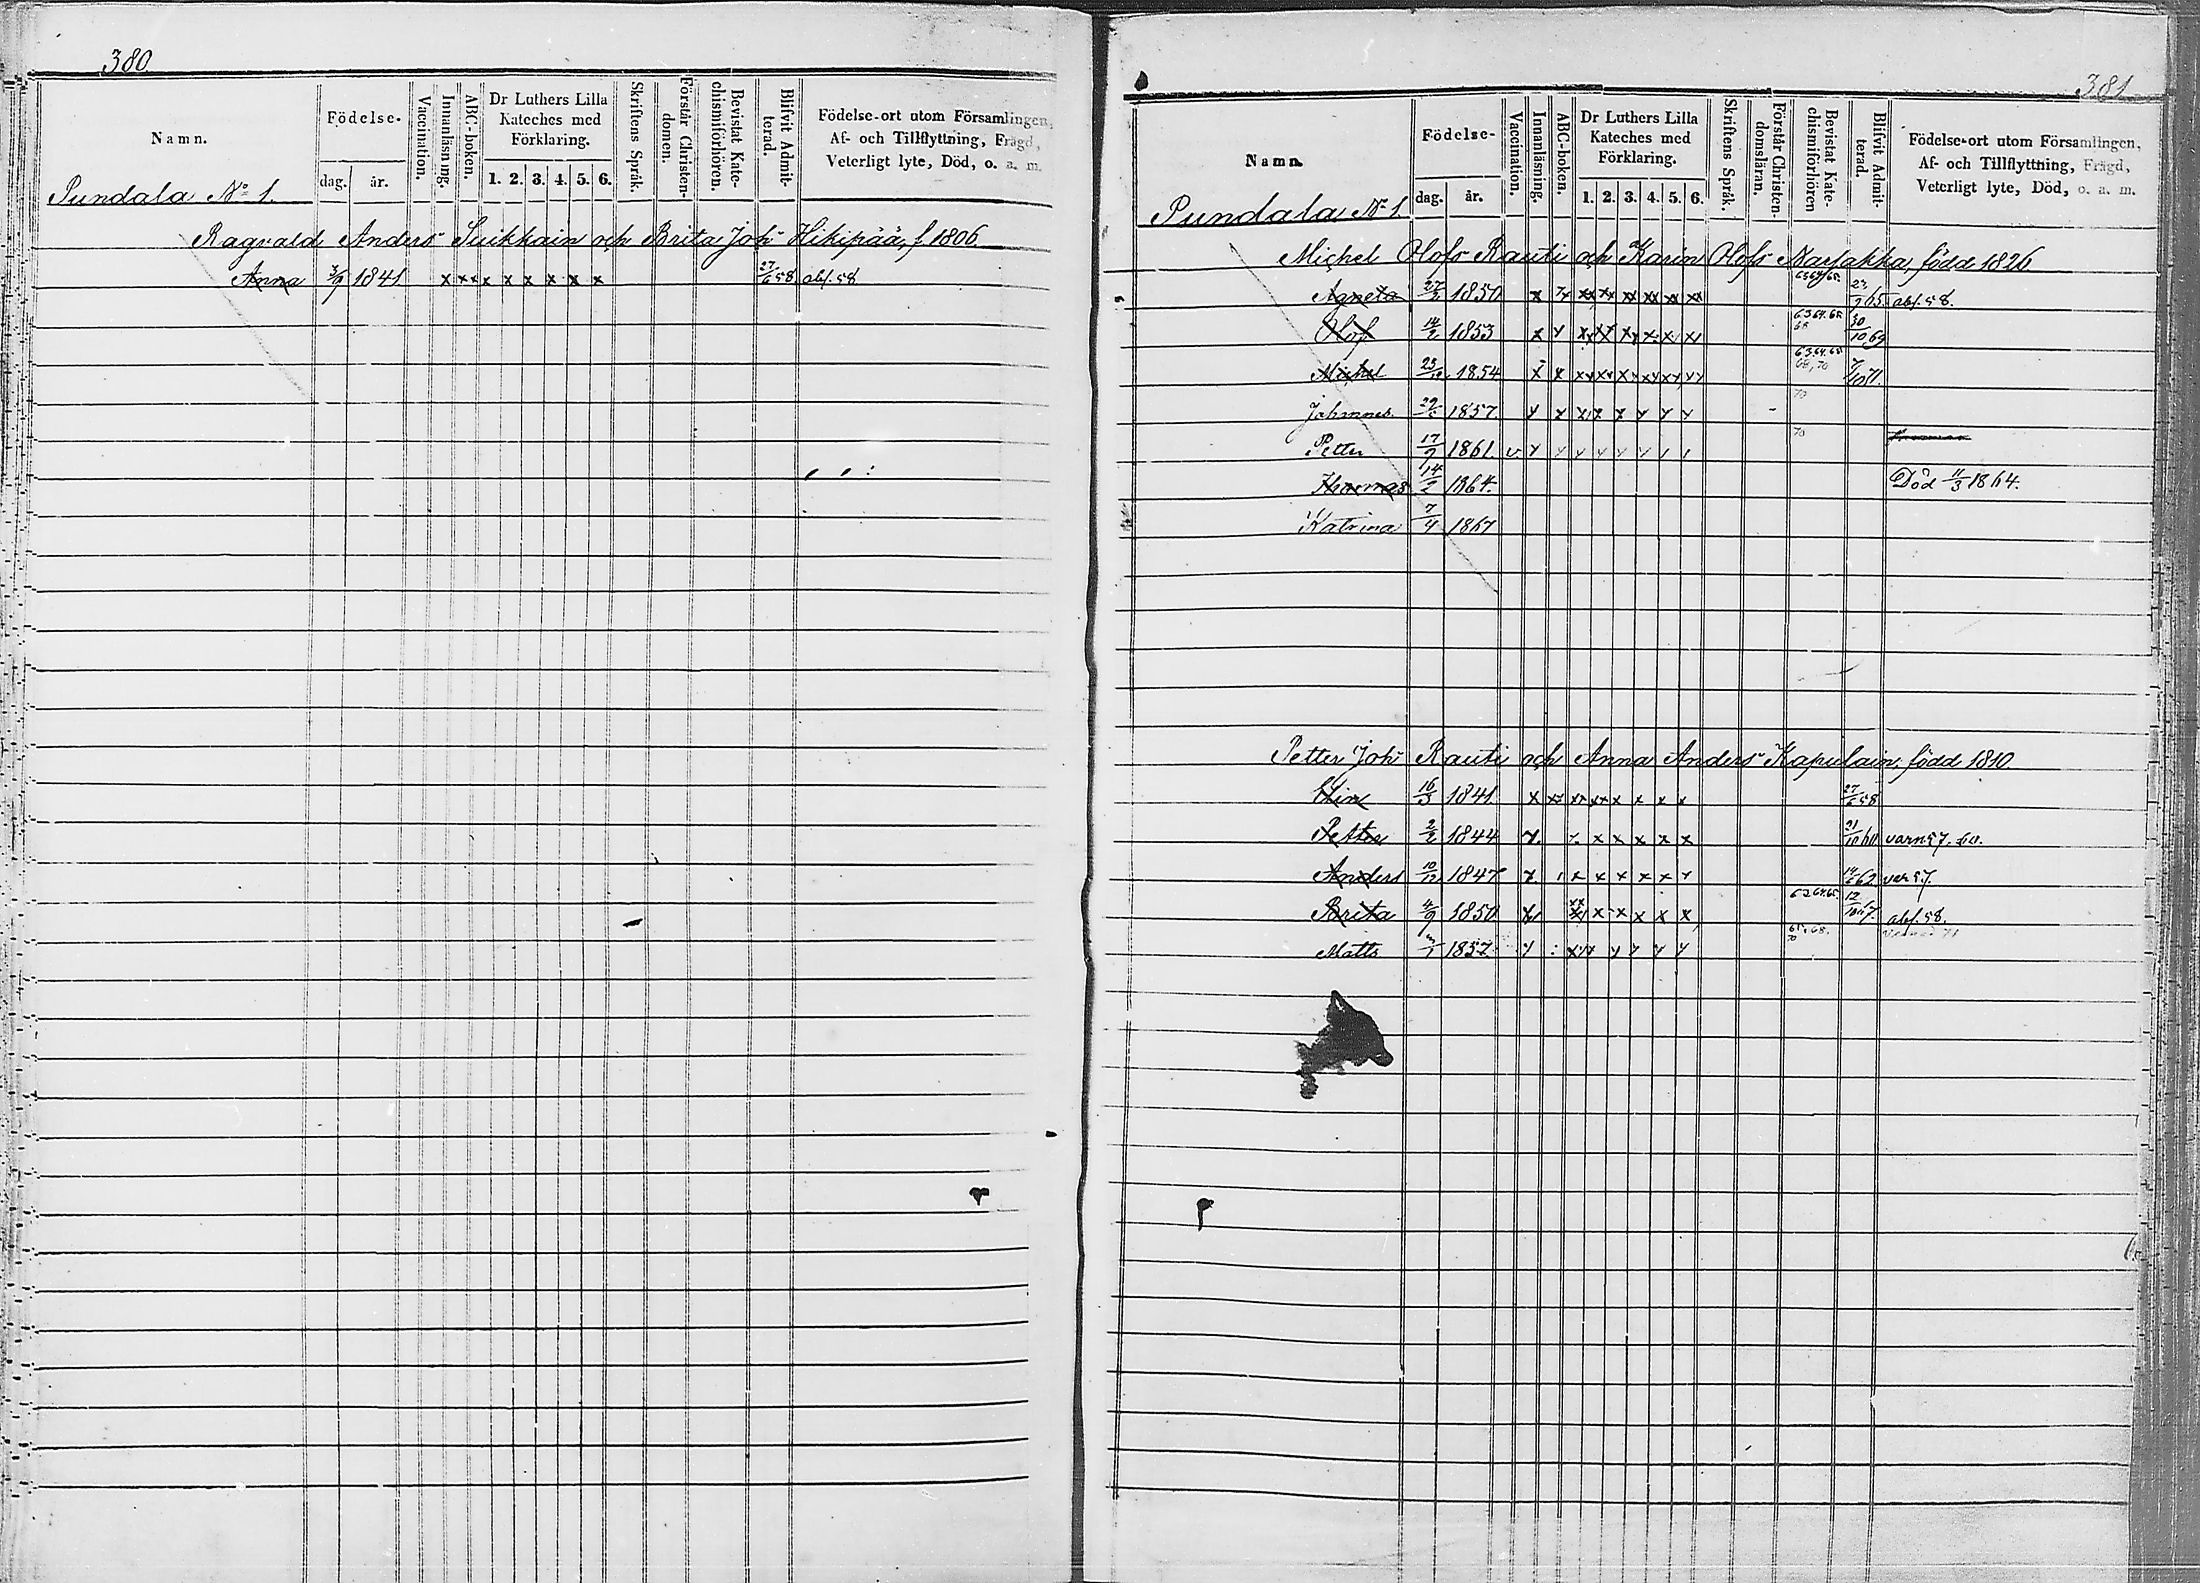 380
Namn.
Födelse-
dag.
år.
Vaccination.
Innanläsning.
ABC-boken.
Dr Luthers Lilla
Kateches med
Förklaring.
1. 2. 3. 4. 5. 6.
Skriftens Språk.
Förstår Christen-
domen.
Bevistat Kate-
chismiförhören.
Blifvit Admit-
terad.
Födelse-ort utom Församlingen,
Af- och Tillflyttning, Frägd,
Veterligt lyte, Död, o. a. m.
Pundala No 1.
Ragvald Anders Suikkain och Brita Joh Hikipää, f 1806
Anna 3/9 1841 x xx x x x x x x 27/6 58 abs. 58
381
Namn.
Födelse-
dag.
år.
Vaccination.
Innanläsning.
ABC-boken.
Dr Luthers Lilla
Kateches med
Förklaring.
1. 2. 3. 4. 5. 6.
Skriftens Språk.
Förstår Christen-
domsläran.
Bevistat Kate-
chismiförhören
Blifvit Admit-
terad.
Födelse-ort utom Församlingen,
Af- och Tillflyttning, Frägd,
Veterligt lyte, Död, o. a. m.
Pundala No 1.
Michel Olofs Rauti och Karin Olofs Narsakka, född 1826
Agneta 1850 63 64 65 23/9 65 abs. 58.
Olof 14/2 1853 63 64. 65 68 30/10 69
Michel 1854 63 64. 65 68, 70
Johannes 1857 70
Petter 17/9 1861 70
Thomas 14/2 1864. Död 11/3 1864.
Katrina 7/4 1867
Petter Joh Rauti och Anna Anders Kapulain, född 1810.
Elin 16/3 1841 27/6 58
Petter 2/2 1844 21/10 60 varn 57. 60.
Anders 10/12 1847 62
Brita 4/9 1850 63 64. 65 12/10 67. abs. 58.
Matts 1857 65, 68. 70